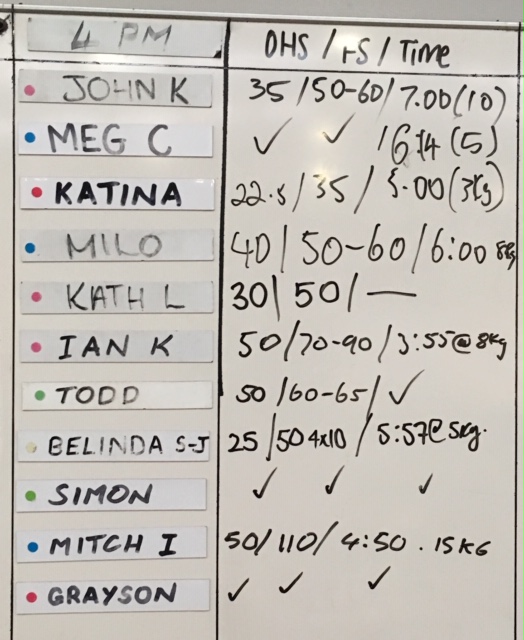 4 PM OHS / FS / Time
JOHN K 35 / 50-60 / 7.00 (10)
MEG C ✓ ✓ / 6:14 (5)
KATINA 22.5 / 35 / 5.00 (3kg)
MILO 40 / 50-60 / 6:00 8kg
KATH L 30 / 50 / —
IAN K 50 / 70-90 / 3:55 @ 8kg
TODD 50 / 60-65 / ✓
BELINDA S-J 25 / 50 4x10 / 5:57 @ 5kg.
SIMON ✓ ✓ ✓
MITCH I 50 / 110 / 4:50 . 15KG
GRAYSON ✓ ✓ ✓